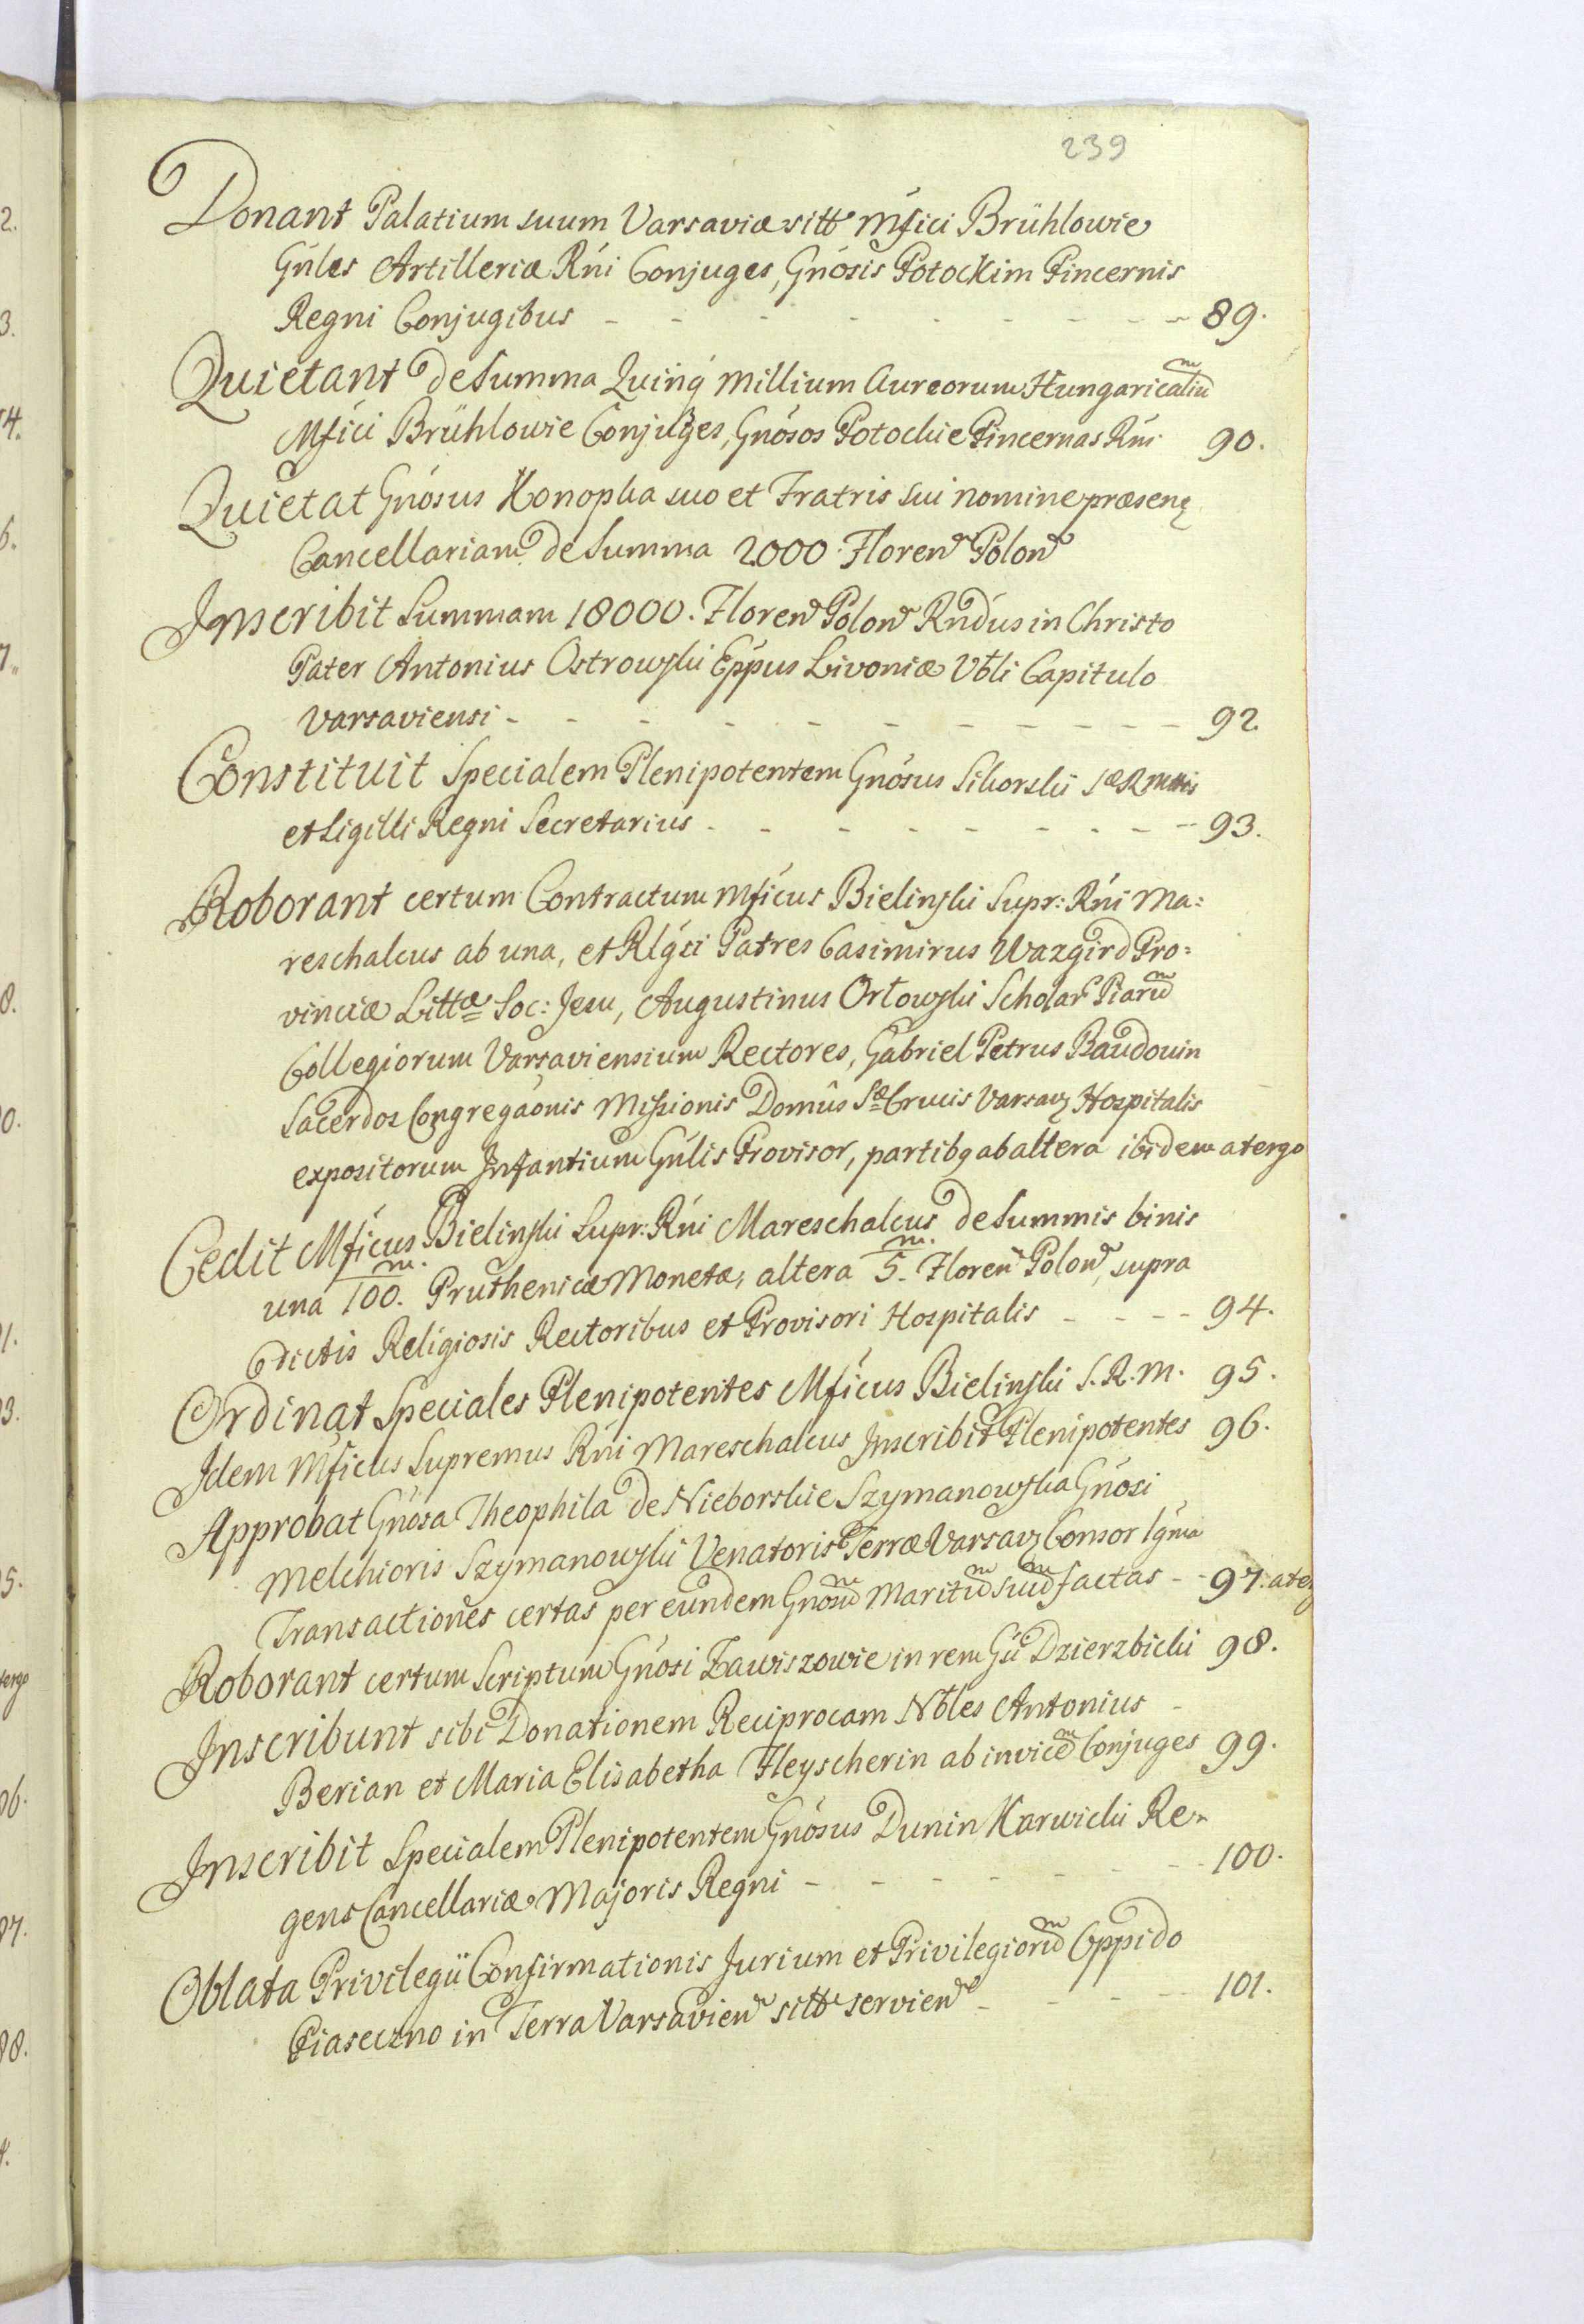 239
Donant Palatium suum Varsaviæ sitt Mfici Brühlowie
Gnles Artilleriæ Rni Conjuges, Gnosis Potockim Pincernis
Regni Conjugibus - - - - - - - - 89.
Quietant de Summa Quinq millium Aureorum Hungaricaliu͠
Mfici Brühlowie Conjuges, Gnosos Potockie Pincernas Rni 90.
Quietat Gnosus Konopka suo et Fratris sui nomine præsenę
Cancellariam de Summa 2000 Floren Polon
Inscribit Summam 18000. Floren Polon Rndus in Christo
Pater Antonius Ostrowski Eppus Livoniæ Vbli Capitulo
Varsaviensi - - - - - - - - - 92.
Constituit Specialem Plenipotentem Gnosus Sikorski Sæ R Mttis
et Sigilli Regni Secretarius - - - - - - - 93.
Roborant certum Contractum Mficus Bielinski Supr: Rni Ma:
reschalcus ab una, et Rlgsi Patres Casimirus Wazgird Pro:
vinciæ Littæ Soc: Jesu, Augustinus Orłowski Scholar Piaru͠
Collegiorum Varsaviensium Rectores, Gabriel Petrus Baudouin
Sacerdos Congregaonis Missionis Domûs Sæ Crucis Varsavę Hospitalis
expositorum Infantium Gnlis Provisor, partibq ab altera ibidem atergo
Cedit Mficus Bielinski Supr: Rni Mareschalcus de Summis binis
una 100.m. Pruthenicæ Monetæ, altera 5.m. Floren Polon, supra
dictis Religiosis Rectoribus et Provisori Hospitalis - - - - 94.
Ordinat Speciales Plenipotentes Mficus Bielinski S. R. M. 95.
Idem Mficus Supremus Rni Mareschalcus Inscribit Plenipotentes 96.
Approbat Gnosa Theophila de Nieborskie Szymanowska Gnosi
Melchioris Szymanowski Venatoris Terræ Varsavę Consor Igma
Transactiones certas per eundem Gnosu͠ Maritu͠ suu͠ factas - - 97. aterg
Roborant certum Scriptum Gnosi Zawiszowie in rem Gsi Dzierzbicki 98.
Inscribunt sibi Donationem Reciprocam Nbles Antonius -
Berian et Maria Elisabetha Fleyscherin ab invice͠ Conjuges 99.
Inscribit Specialem Plenipotentem Gnosus Dunin Karwicki Re-
gens Cancellariæ Majoris Regni - - - - - - - 100.
Oblata Privilegii Confirmationis Jurium et Privilegioru͠ Oppido
Piaseczno in Terra Varsavien sitt servien - - - - 101.